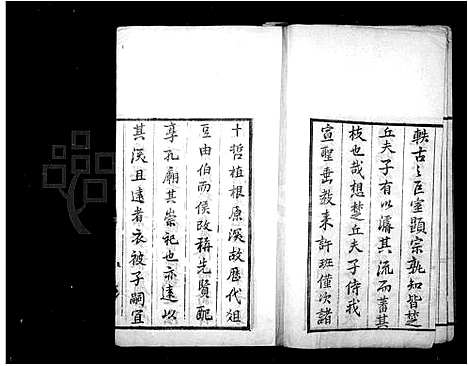 軼古之巨室顯宗孰知皆楚
丘夫子有以濬其流而蕃其
枝也哉想楚丘夫子侍我
宣聖垂教來許班僅次諸
十哲植根原溪故歷代俎
豆由伯而侯改稱先賢配
享孔廟其崇祀也亦遠以
其溪且遠者衣被子嗣宜